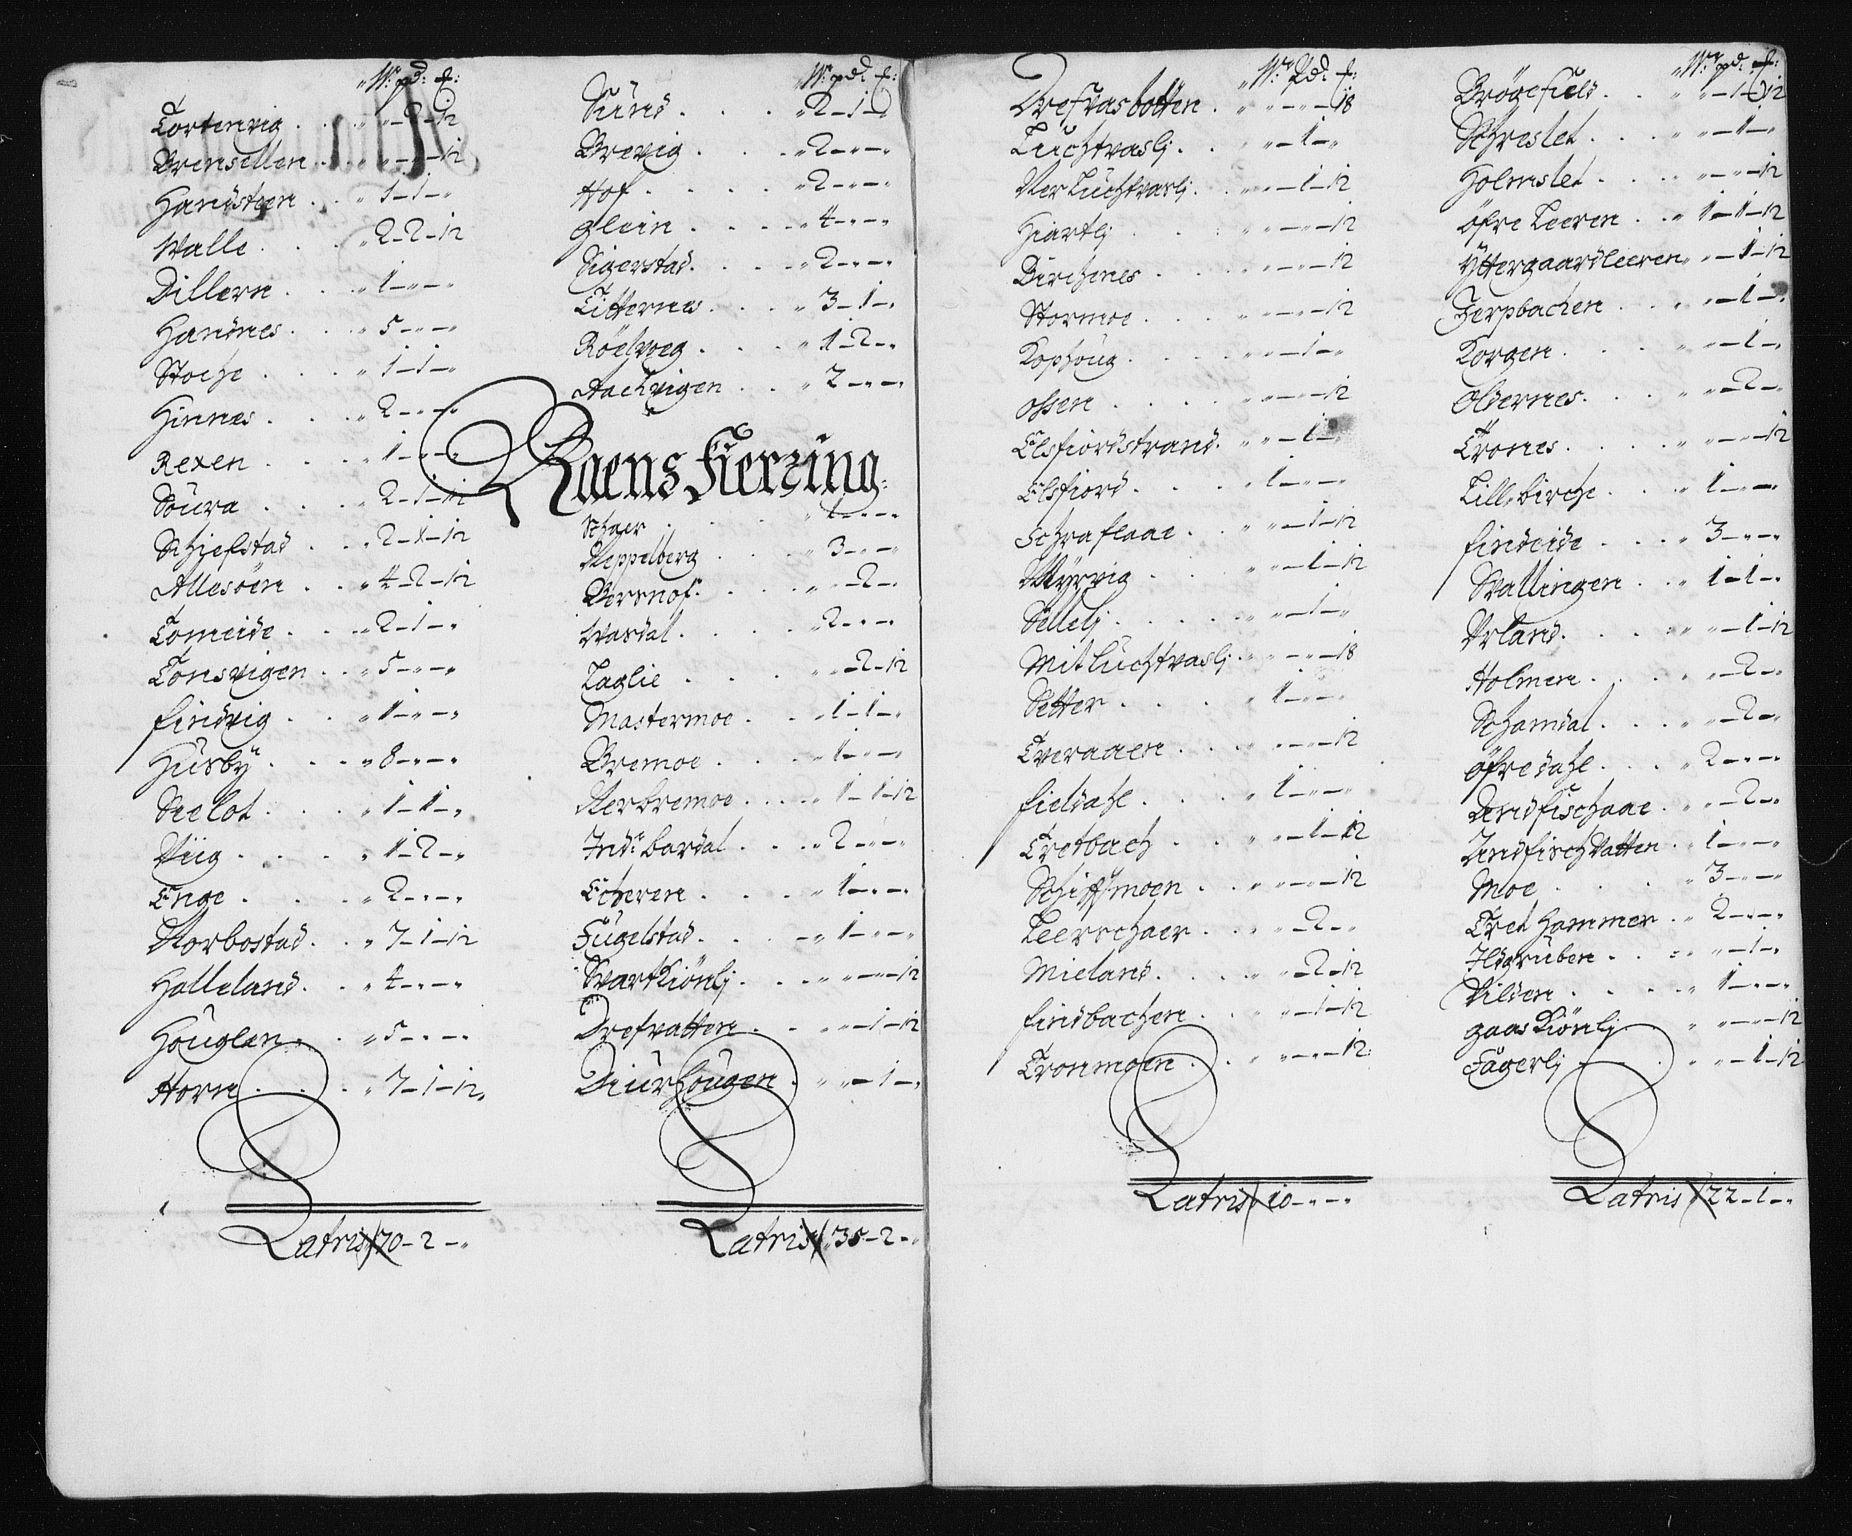 W: pd: £:
Tortenvig . . . „ „–2–12
Brensellen . . „ „–„–12
Handsteen . . „ 1–1–„
Walle . . . „ 2–2–12
Dillern . . . „ 1–„–„
Handnes . . . „ 5–„–„
Stoche . . . „ 1–1–„
Hinnes . . . „ 2–„–„
Rexen . . . „ 1–„–„
Soüra . . . „ 2–1–12
Schiefstad . . „ 2–1–12
Allesöen . . „ 4–2–12
Tomeide . . . „ 2–1–„
Tonsvigen . . „ 5–„–„
findvig . . . „ 1–„–„
Hüsby . . . „ 8–„–„
Seelot . . . „ 1–1–„
Viig . . . „ 1–2–„
Enge . . . „ 2–„–„
Norbostad . . „ 7–1–12
Halleland . . „ 4–„–„
Houglen . . „ 5–„–„
Horn . . . „ 7–1–12
Latris 70–2–„
W: pd: £:
Sünd . . . „ 2–1–„
Brevig . . . „ 2–„–„
Hof . . . . „ 2–„–„
Glein . . . . „ 4–„–„
Sigerstad . . . „ 2–„–„
Titternes . . . „ 3–1–„
Röelvoeg . . . „ 1–2–„
Aachvigen . . „ 2–„–„
Raens Fierzing:
Schaer . . . „ 1–„–„
Neppelberg . . „ 3–„–„
Bersnof . . . „ „–2–„
Wasdal . . . „ 2–„–„
Laglie . . . „ „–2–12
Mastermoe . . „ 1–1–„
Bremoe . . . „ 1–„–„
Nerbremoe . . . „ 1–1–12
Indr bardal . . . „ 2–„–„
Echeren . . . „ 1–„–„
Fugelstad . . . „ 1–„–„
Svartkiönlj . . . „ „–„–12
Drefvatten . . „ „–1–12
Diurhougen . „ „–1–„
Latris 35–2–„
W: Pd: £:
Drefvasbotten . „ „–„–18
Luchtvaslj . . „ „–1–„
Ner Lüchtvaslj . . „ „–1–12
Hiartlj . . . „ „–„–12
Birchnes . . . „ „–„–12
Stormoe . . . „ „–„–12
Kophoug . . . „ „–1–„
Ossen . . . . „ „–„–12
Elsfiordstrand . „ „–1–„
Elsfiord . . . „ 1–„–„
Schraflaae . . „ „–1–12
Myrvig . . . „ „–1–12
Sellelj . . . . „ „–1–„
Mitluchtvaslj . „ „–„–18
Setter . . . . „ 1–„–„
Tveraaen . . . „ „–„–12
fieldahl . . . . „ 1–„–„
Tretbach . . . „ „–1–12
Schiffmoen . . „ „–„–12
Leerschaer . . . „ „–2–„
Mieland . . . . „ „–2–12
findbachen . . . „ „–1–12
Tronmoen . . „ „–„–12
Latris 10–„–„
W: pd: £:
Brögefield . . „ „–1–12
Schreslet . . . „ „–1–„
Holmslet . . . „ „–„–12
öfre Leeren . . „ 1–1–12
Yttergaardleeren „ „–1–12
Jerpbachen . . „ „–1–„
Korgen . . . . „ „–1–„
Oldernes . . . „ „–2–„
Trones . . . . „ „–„–12
Lillebirche . . „ 1–„–„
findeide . . . „ 3–„–„
Vallingen . . „ 1–1–„
Urland . . . . „ „–1–12
Holmen . . . . „ „–2–„
Schamdal . . . „ „–2–„
öfredahl . . . „ 2–„–„
Andfischaae . „ „–2–„
Andfisch Vatten . „ 1–„–„
Moe . . . . „ 3–„–„
Tret Hammer . „ 2–„–„
Ildgruben . . „ „–1–„
Vilden . . . . „ 1–„–„
gaaskiönlj . . „ „–„–12
Fagerlj . . . „ „–1–12
Latris 22–1–„